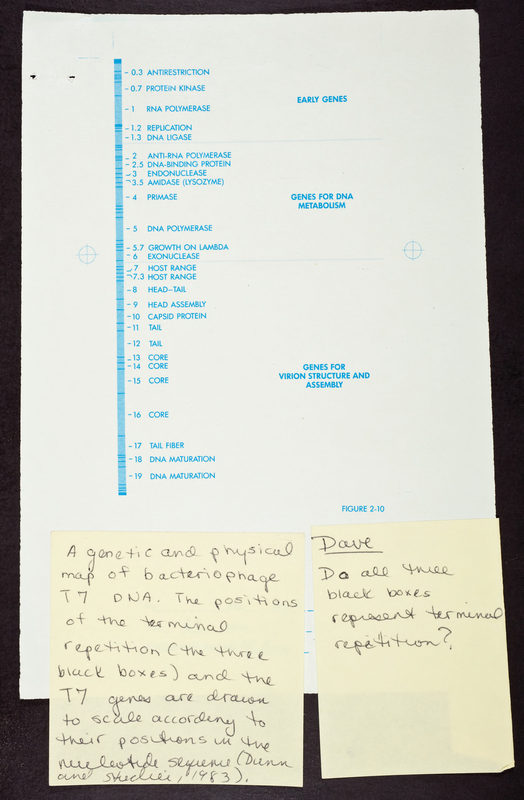 - 0.3 ANTIRESTRICTION
- 0.7 PROTEIN KINASE
EARLY GENES
- 1 RNA POLYMERASE
- 1.2 REPLICATION
- 1.3 DNA LIGASE
- 2 ANTI-RNA POLYMERASE
- 2.5 DNA-BINDING PROTEIN
- 3 ENDONUCLEASE
- 3.5 AMIDASE (LYSOZYME)
- 4 PRIMASE
GENES FOR DNA
METABOLISM
- 5 DNA POLYMERASE
- 5.7 GROWTH ON LAMBDA
- 6 EXONUCLEASE
- 7 HOST RANGE
- 7.3 HOST RANGE
- 8 HEAD–TAIL
- 9 HEAD ASSEMBLY
- 10 CAPSID PROTEIN
- 11 TAIL
- 12 TAIL
- 13 CORE
- 14 CORE
- 15 CORE
GENES FOR
VIRION STRUCTURE AND
ASSEMBLY
- 16 CORE
- 17 TAIL FIBER
- 18 DNA MATURATION
- 19 DNA MATURATION
FIGURE 2-10
A genetic and physical
map of bacteriophage
T7 DNA. The positions
of the terminal
repetition (the three
black boxes) and the
T7 genes are drawn
to scale according to
their positions in the
nucleotide sequence (Dunn
and Studier, 1983).
Dave
Do all three
black boxes
represent terminal
repetition?